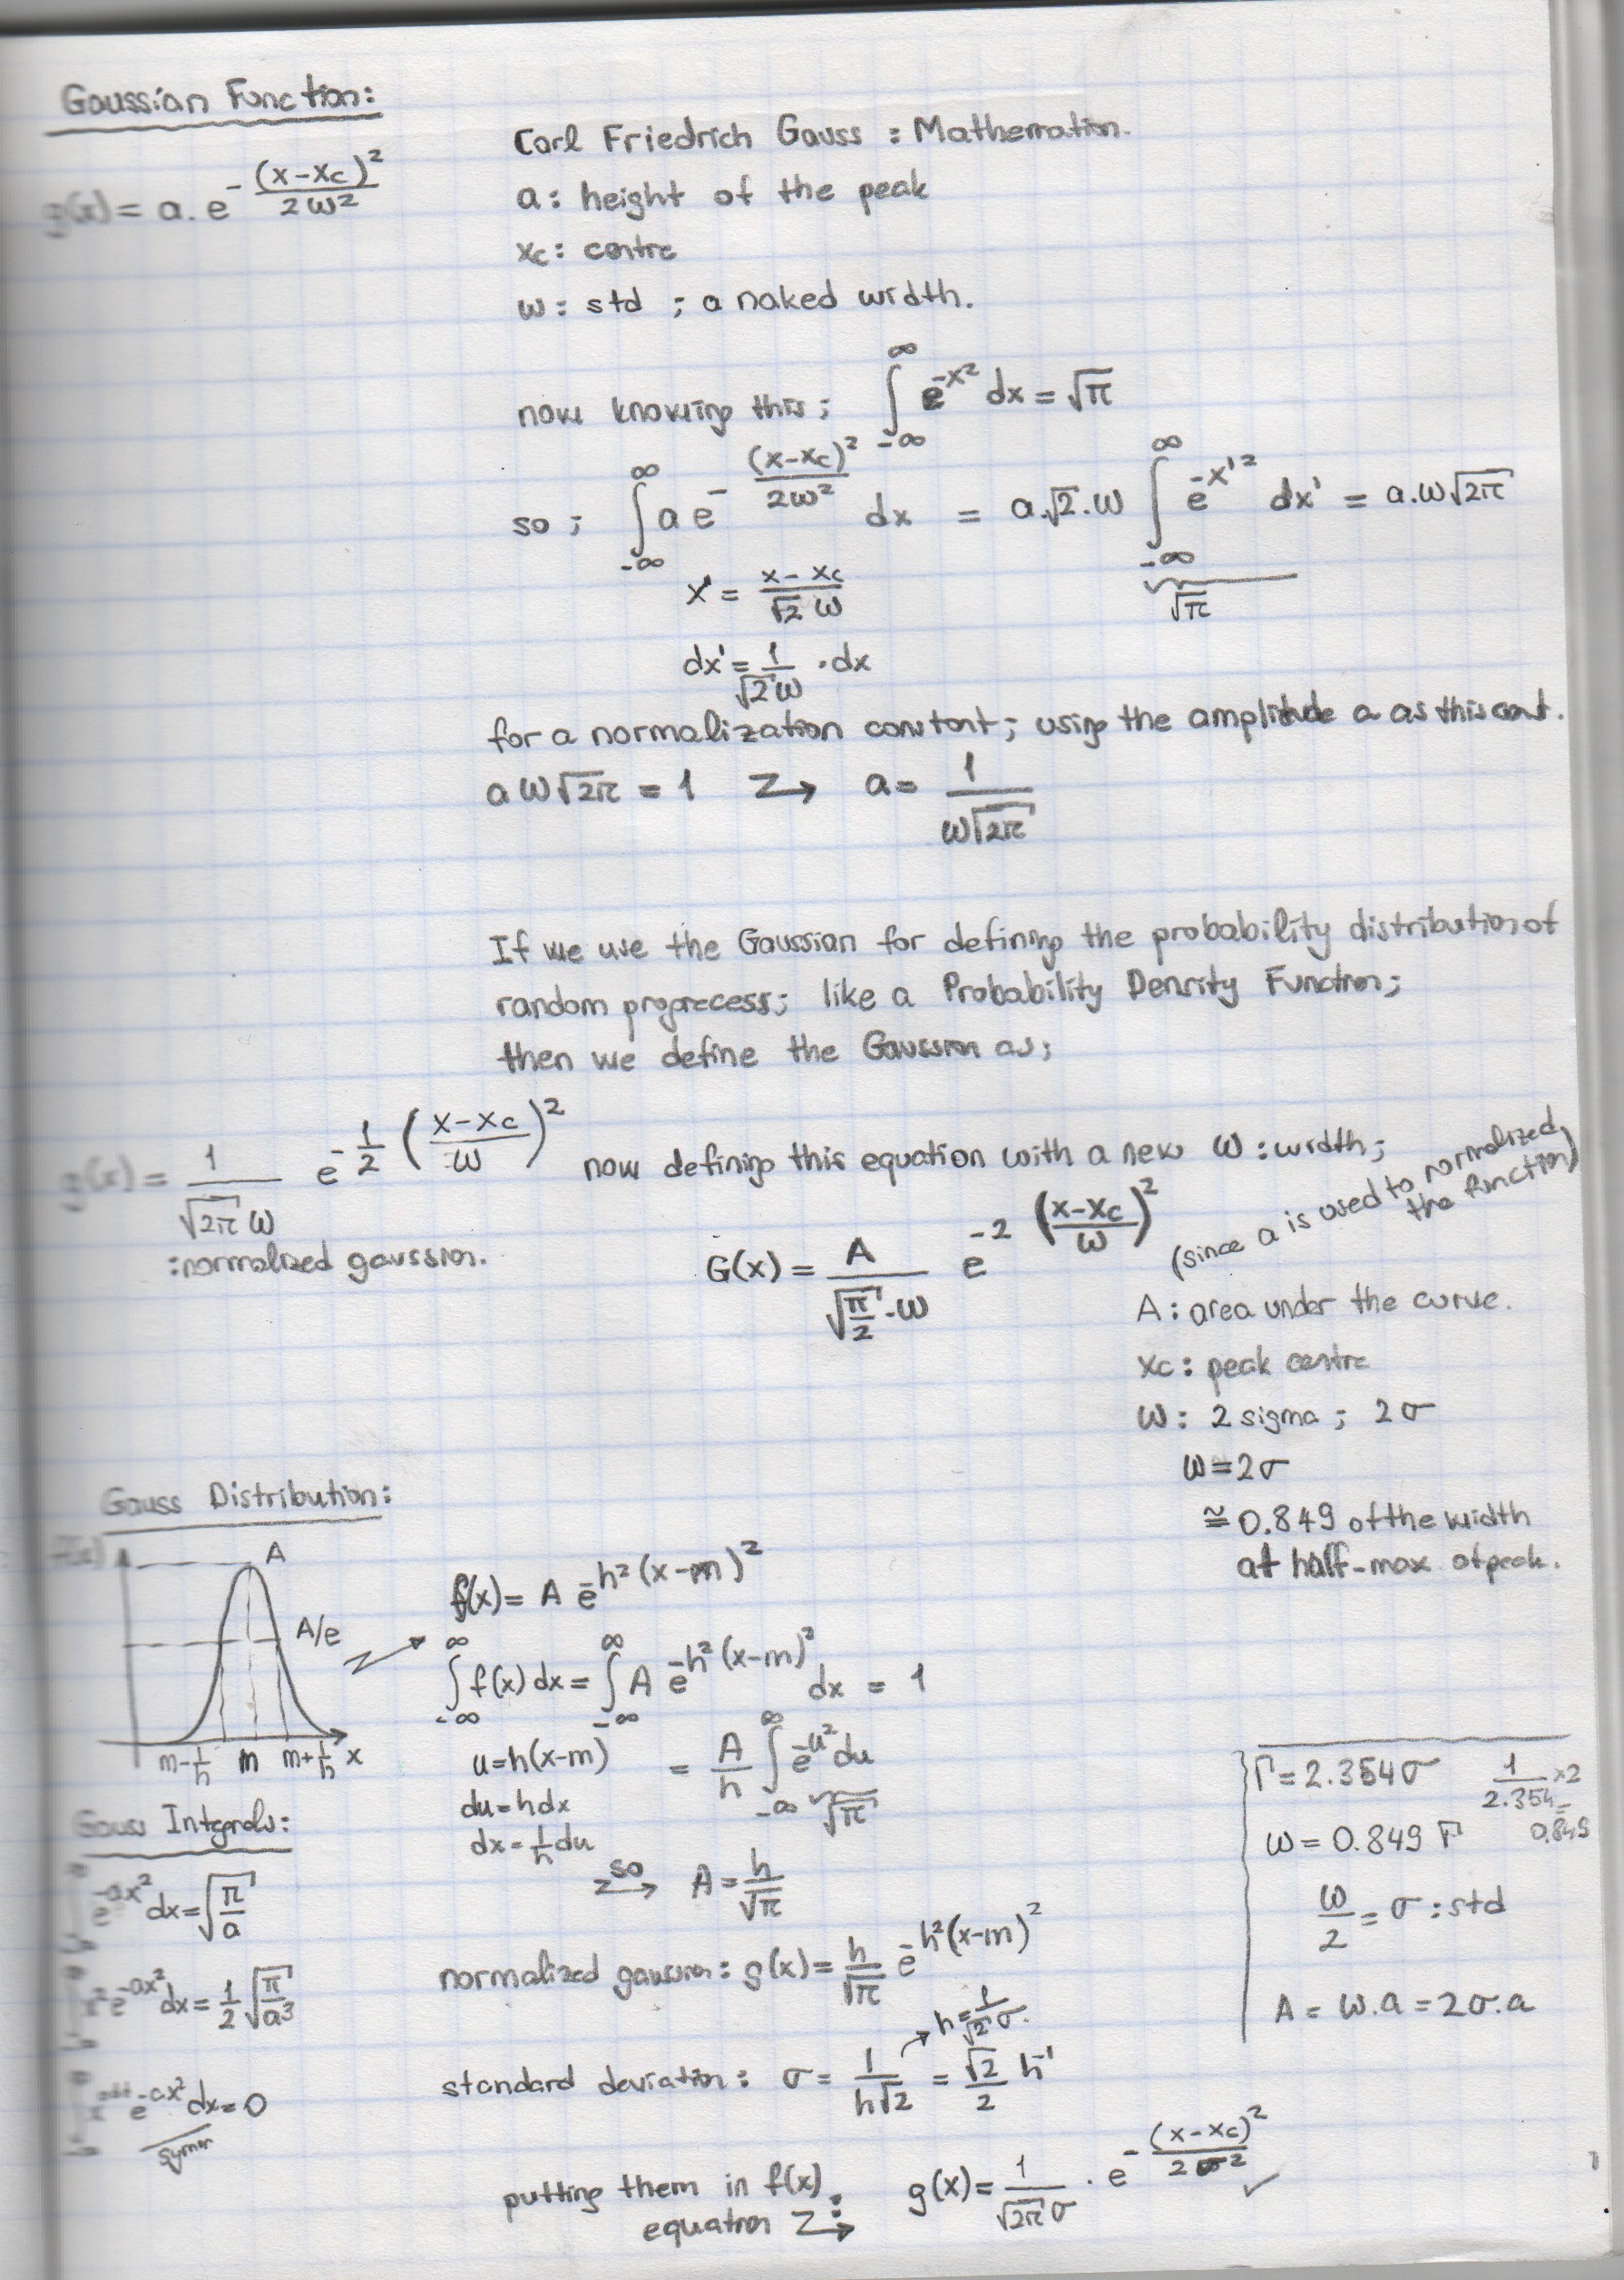 Gaussian Function:
g(x) = a. e^-(x-xc)²/2ω²
Carl Friedrich Gauss : Mathemation.
a: height of the peak
xc: centre
ω: std ; a naked width.
now knowing this; ∫_-∞^∞ e^-x² dx = √π
so ; ∫_-∞^∞ a e^-(x-xc)²/2ω² dx = a.√2.ω ∫_-∞^∞ e^-x'² dx' = a.ω√2π
√π
x' = x-xc/√2 ω
dx' = 1/√2 ω · dx
for a normalization constant; using the amplitude a as this cont.
a ω√2π = 1 → a = 1/ω√2π
If we use the Gaussian for defining the probability distribution of
random progrecess; like a Probability Density Function;
then we define the Gaussian as;
g(x) = 1/√2π ω e^-1/2 (x-xc/ω)² now defining this equation with a new ω : width;
:normalized gaussian.
(since a is used to normalized
the function)
G(x) = A/√π/2 · ω e^-2 (x-xc/ω)²
A: area under the curve.
xc: peak centre
ω: 2 sigma ; 2σ
ω=2σ
≅ 0.849 of the width
at half-max of peak.
Gauss Distribution:
f(x)
A
A/e
m-1/h m m+1/h x
f(x) = A e^-h²(x-m)²
∫_-∞^∞ f(x) dx = ∫_-∞^∞ A e^-h²(x-m)² dx = 1
u=h(x-m) = A/h ∫_-∞^∞ e^-u² du
√π
du=hdx
dx=1/h du
so → A = h/√π
normalized gaussian: g(x) = h/√π e^-h²(x-m)²
h=1/√2 σ.
standard deviation: σ = 1/h√2 = √2/2 h^-1
putting them in f(x)
equation → g(x) = 1/√2π σ · e^-(x-xc)²/2σ² ✓
Gauss Integrals:
e^-ax² dx = √π/a
x² e^-ax² dx = 1/2 √π/a³
e^-ax² dx = 0
symm
Γ = 2.354σ
1/2.354 ×2 = 0.849
ω = 0.849 Γ
ω/2 = σ : std
A = ω.a = 2σ.a